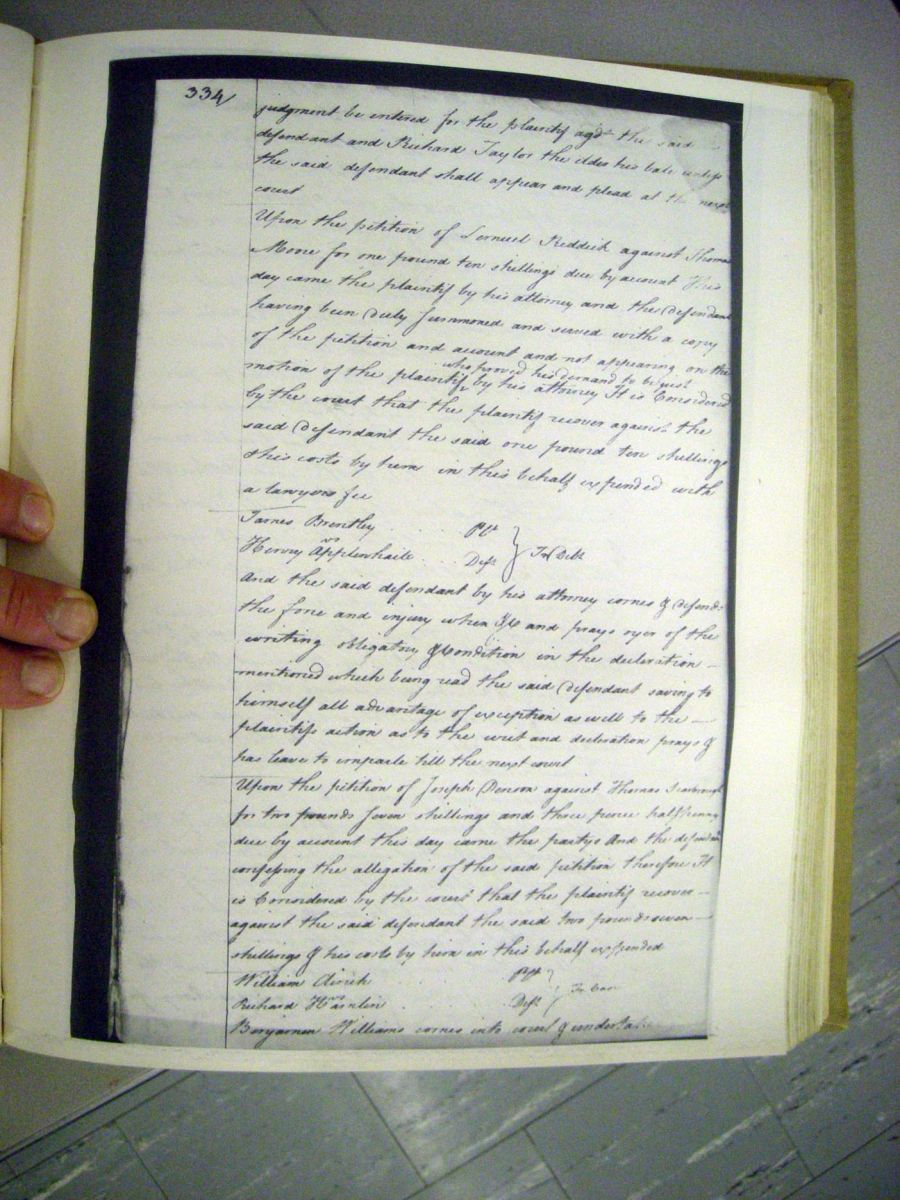 334
judgment be entered for the plaintif agst the said
defendant and Richard Taylor the elder his bale unless
the said defendant shall appear and plead at the next
court
Upon the petition of Lemuel Reddick against Thomas
Moore for one pound ten shillings due by account This
day came the plaintif by his attorney and the defendant
having been duly summoned and served with a copy
of the petition and account and not appearing on the
who proved his demand to be just
motion of the plaintif by his attorney It is Considered
by the court that the plaintif recover against the
said defendant the said one pound ten shillings
& his costs by him in this behalf expended with
a lawyers fee
James Brentley Plt
vs
Henry Applewhaite Deft In Debt
And the said defendant by his attorney comes & defends
the force and injury when &c and prays oyer of the
writing obligatory & Condition in the declaration
mentioned which being read the said defendant saving to
himself all advantage of exception as well to the
plaintifs action as to the writ and decleration prays &
has leave to imparle till the next court
Upon the petition of Joseph Denson against Thomas Scarbrough
for two pounds seven shillings and three pence halfpenny
due by account this day came the partys And the defendant
confessing the allegation of the said petition therefore It
is Considered by the court that the plaintif recover
against the said defendant the said two pounds seven
shillings & his costs by him in this behalf expended
William Plt
vs
Richard Hamlin Deft In Case
Benjamen Williams comes into court & undertakes